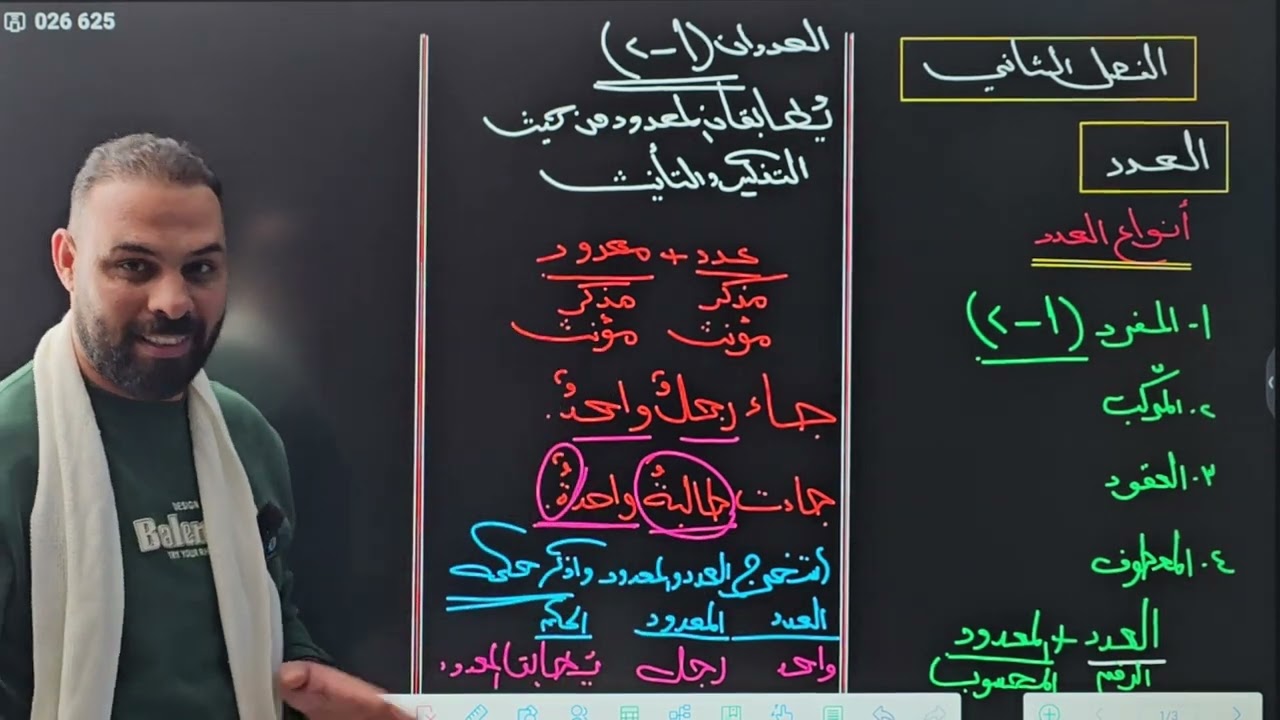 026 625
الفصل الثاني
العدد
أنواع العدد
١- المفرد (١-٢)
٢. المركّب
٣. العقود
٤. المعطوف
العدد + المعدود
الرقم المحسوب
العددان (١-٢)
يُطابقان المعدود من حيث
التذكير والتأنيث
عدد + معدود
مذكر مذكر
مؤنث مؤنث
جاء رجلٌ واحدٌ.
جاءت طالبةٌ واحدةٌ.
استخرج العدد والمعدود واذكر حكمه
العدد المعدود الحكم
واحد رجل يُطابق المعدود
DESIGN
TRY YOUR
1/3